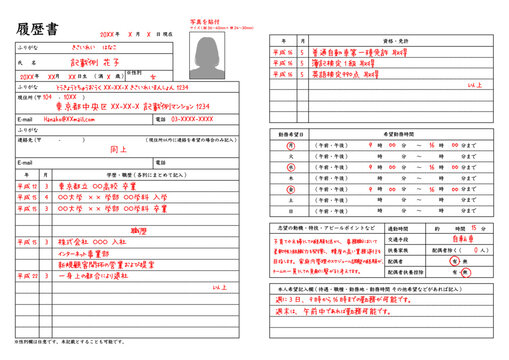 履歴書
20XX 年 X 月 X 日 現在
写真を貼付
ふりがな きさいれい はなこ
氏 名 記載例 花子
20XX 年 XX 月 XX 日生 (満 X 歳) ※性別 女
ふりがな とうきょうとちゅうおうく XX-XX-X きさいれいまんしょん 1234
現住所(〒 104 - 10XX )
東京都中央区 XX-XX-X 記載例マンション 1234
E-mail Hanako@XXmail.com 電話 03-XXXX-XXXX
ふりがな
連絡先(〒 - ) (現住所以外に連絡を希望の場合のみ記入)
同上
E-mail 電話
年 月 学歴・職歴(各別にまとめて記入)
平成 12 3 東京都立 〇〇高校 卒業
平成 15 4 〇〇大学 ×× 学部 〇〇学科 入学
平成 15 3 〇〇大学 ×× 学部 〇〇学科 卒業
職歴
平成 15 3 株式会社 〇〇〇 入社
インターネット事業部
新規顧客開拓の営業および提案
平成 22 3 一身上の都合により退社
以上
※性別欄は任意です。未記載とすることも可能です。
年 月 資格・免許
平成 16 5 普通自動車第一種免許 取得
平成 16 5 簿記検定1級 取得
平成 16 5 英語検定990点 取得
以上
勤務希望日 希望勤務時間
月 (午前・午後) 9 時 00 分 ～ 16 時 00 分まで
火 (午前・午後) 時 分 ～ 時 分まで
水 (午前・午後) 9 時 00 分 ～ 16 時 00 分まで
木 (午前・午後) 時 分 ～ 時 分まで
金 (午前・午後) 9 時 00 分 ～ 16 時 00 分まで
土 (午前・午後) 時 分 ～ 時 分まで
日 (午前・午後) 時 分 ～ 時 分まで
志望の動機・特技・アピールポイントなど
通勤時間 約 時間 15 分
交通手段 自転車
扶養家族 配偶者除く( 0 人)
配偶者 有・無
配偶者扶養控除 有・無
本人希望記入欄(待遇・職種・勤務地・勤務時間 その他希望などがあれば記入)
週に3日、9時から16時までの勤務が可能です。
週末は、午前中であれば勤務可能です。